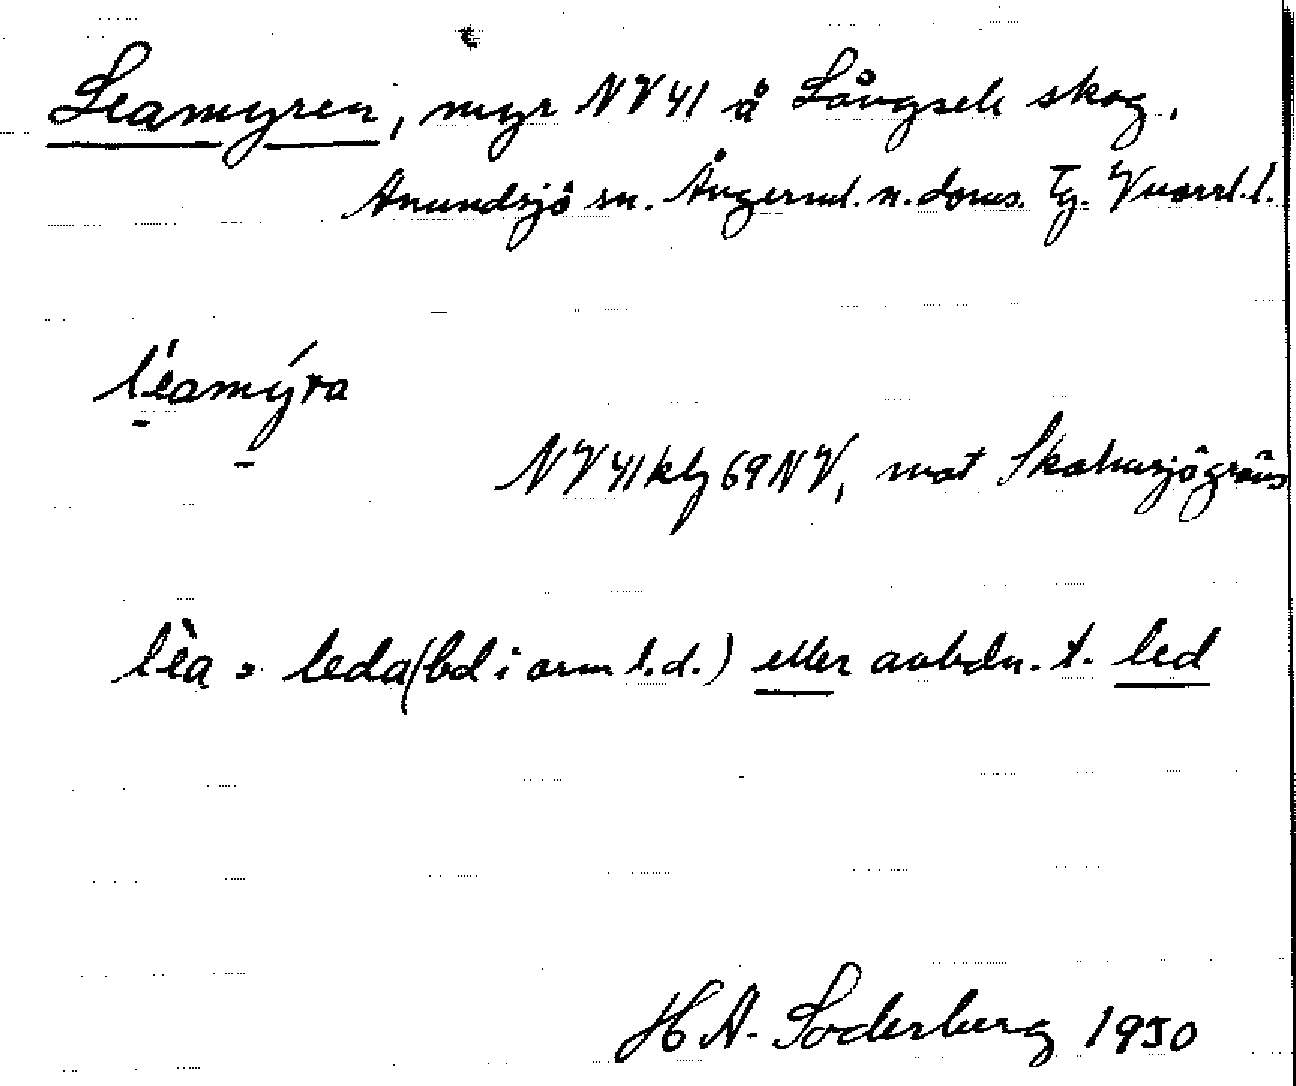 Leamyren, myr NV 41 å Långsele skog,
Anundsjö sn. Ångerml. n. doms. Tg. Vnorrl. l.
lèamýra
NV 41 klg 69 NV, mot Skalmsjögräns
lèa = leda (bd i orm l.d.) eller avledn. t. led
H A. Söderberg 1930